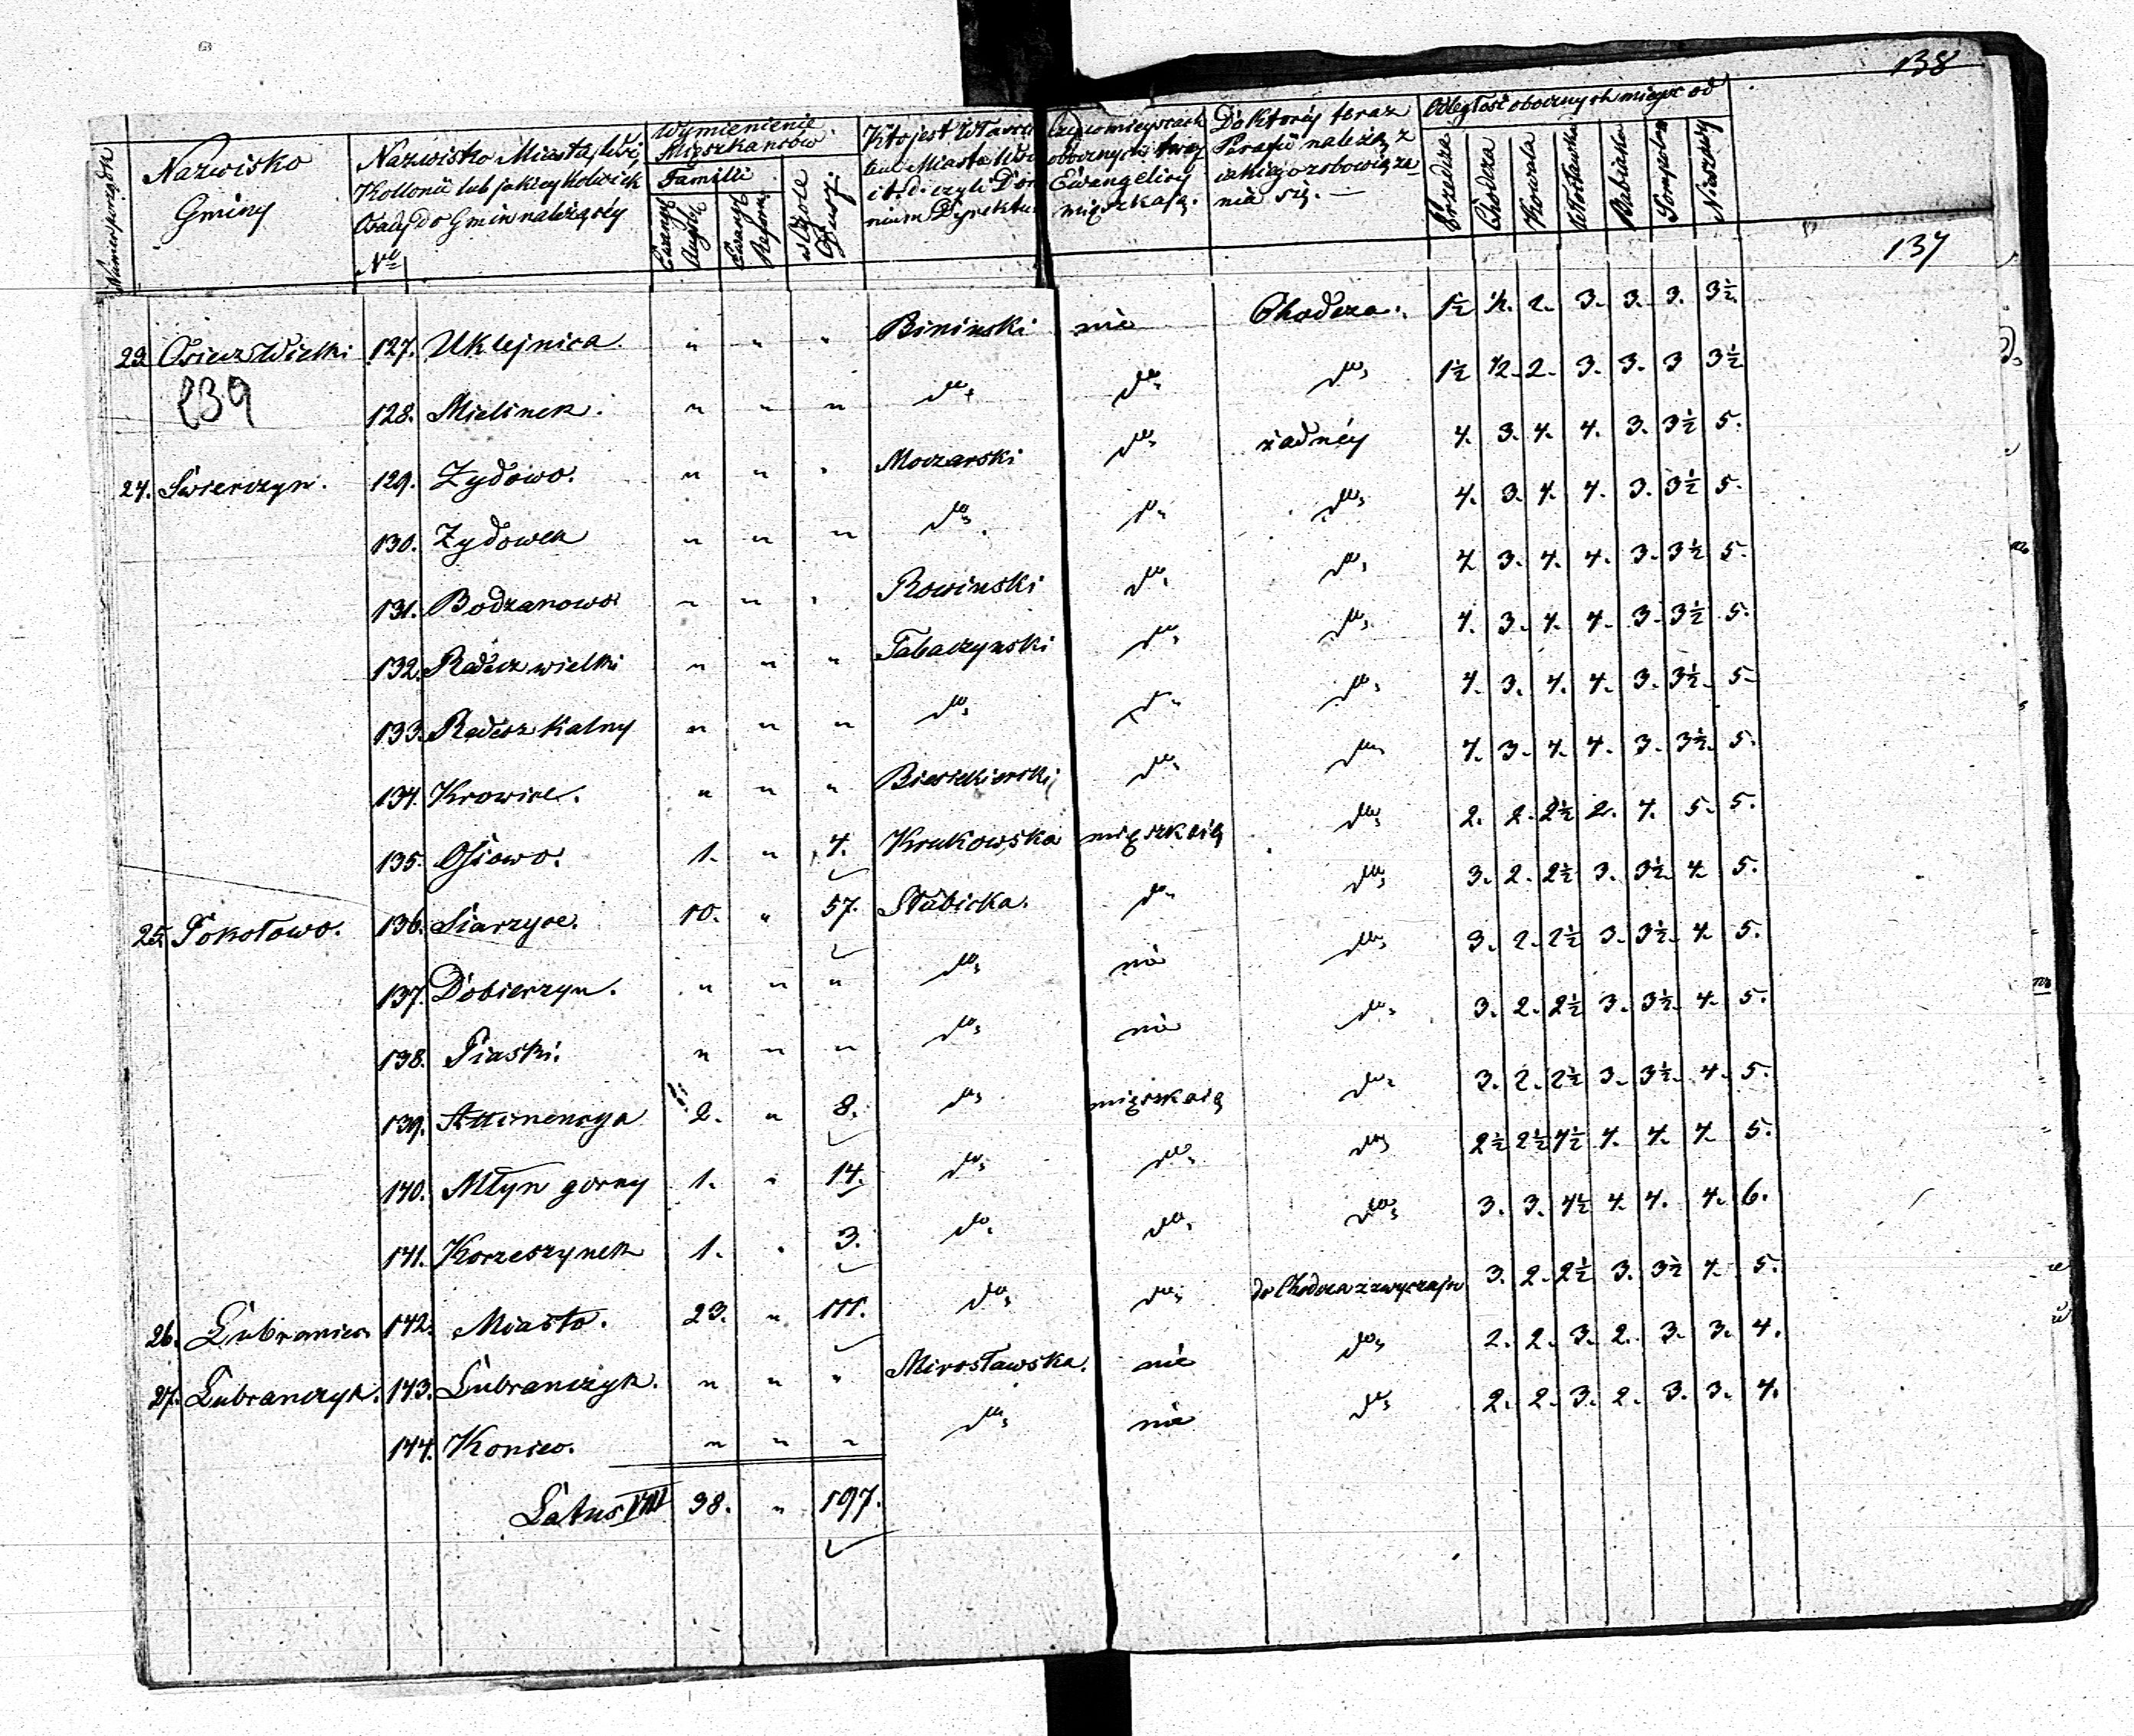 138
137
Numer porządk
Nazwisko Gminy
Nazwisko Miasta, Wsi, Kollonii lub jakiey kolwiek Osady do Gmin należący
No
Wymienienie Mięszkancow
Familii
Ewang. Augsb.
Ewang. Reform.
w Ogóle Dusz.
Kto jest Właści
ciel Miasta Wsi
i t. d. czyli Do
nium Dyrektu
Czy w mieyscach obocznych teraz Ewangelicy mięszkaią.
Do ktoréy teraz Parafii należą, z iakiego zobowiąza nia się. —
Odległość obocznych mieysc od
Przedecza
Chodcza
Kowala
Włocławka
Babiaka
Sompolna
Nieszawy
23. Osiecz Wielki 127. Uklejnica. " " " Bininski nie Chodecza. 1½ ½. 2. 3. 3. 3. 3½
239
128. Mielinek. " " " do do do 1½ ½. 2. 3. 3. 3 3½
24. Swierczyn. 129. Zydowo. " " " Moczarski do żadnéy 4. 3. 4. 4. 3. 3½ 5.
130. Zydowek " " " do do do 4. 3. 4. 4. 3. 3½ 5.
131. Bodzanowo " " " Rowinski do do 4 3. 4. 4. 3. 3½ 5.
132. Radecz wielki " " " Tabaczynski do do 4. 3. 4. 4. 3. 3½ 5.
133. Radecz Kalny " " " do do do 4. 3. 4. 4. 3. 3½. 5.
134. Krowice. " " " Biesiekierski do do 4. 3. 4. 4. 3. 3½. 5.
135. Osiowo. 1. " 4. Krukowska mięszkaią do 2. 2. 2½ 2. 4. 5. 5.
25. Pokotowo. 136. Siarzyce. 10. " 57. Słubicka. do do 3. 2. 2½ 3. 3½. 4. 5.
137. Dobierzyn. " " " do nie do 3. 2. 2½ 3. 3½. 4. 5.
138. Piaski. " " " do nie do 3. 2. 2½ 3. 3½. 4. 5.
139. Attinencya 2. " 8. do mięszkaią do 3. 2. 2½ 3. 3½. 4. 5.
140. Młyn gorny 1. " 14. do do do 2½ 2½ 4½ 4. 4. 4. 5.
141. Korzeszynek 1. " 3. do do do 3. 3. 4½ 4. 4. 4. 6.
26. Lubraniec 142. Miasto. 23. " 111. do do do Chodcza z zwyczaju 3. 2. 2½ 3. 3½ 4. 5.
27. Lubranczyk. 143. Lubranczyk. " " " Mirosławska. nie do 2. 2. 3. 2. 3. 3. 4.
144. Koniec. " " " do nie do 2. 2. 3. 2. 3. 3. 4.
Latus VIII 38. " 197.